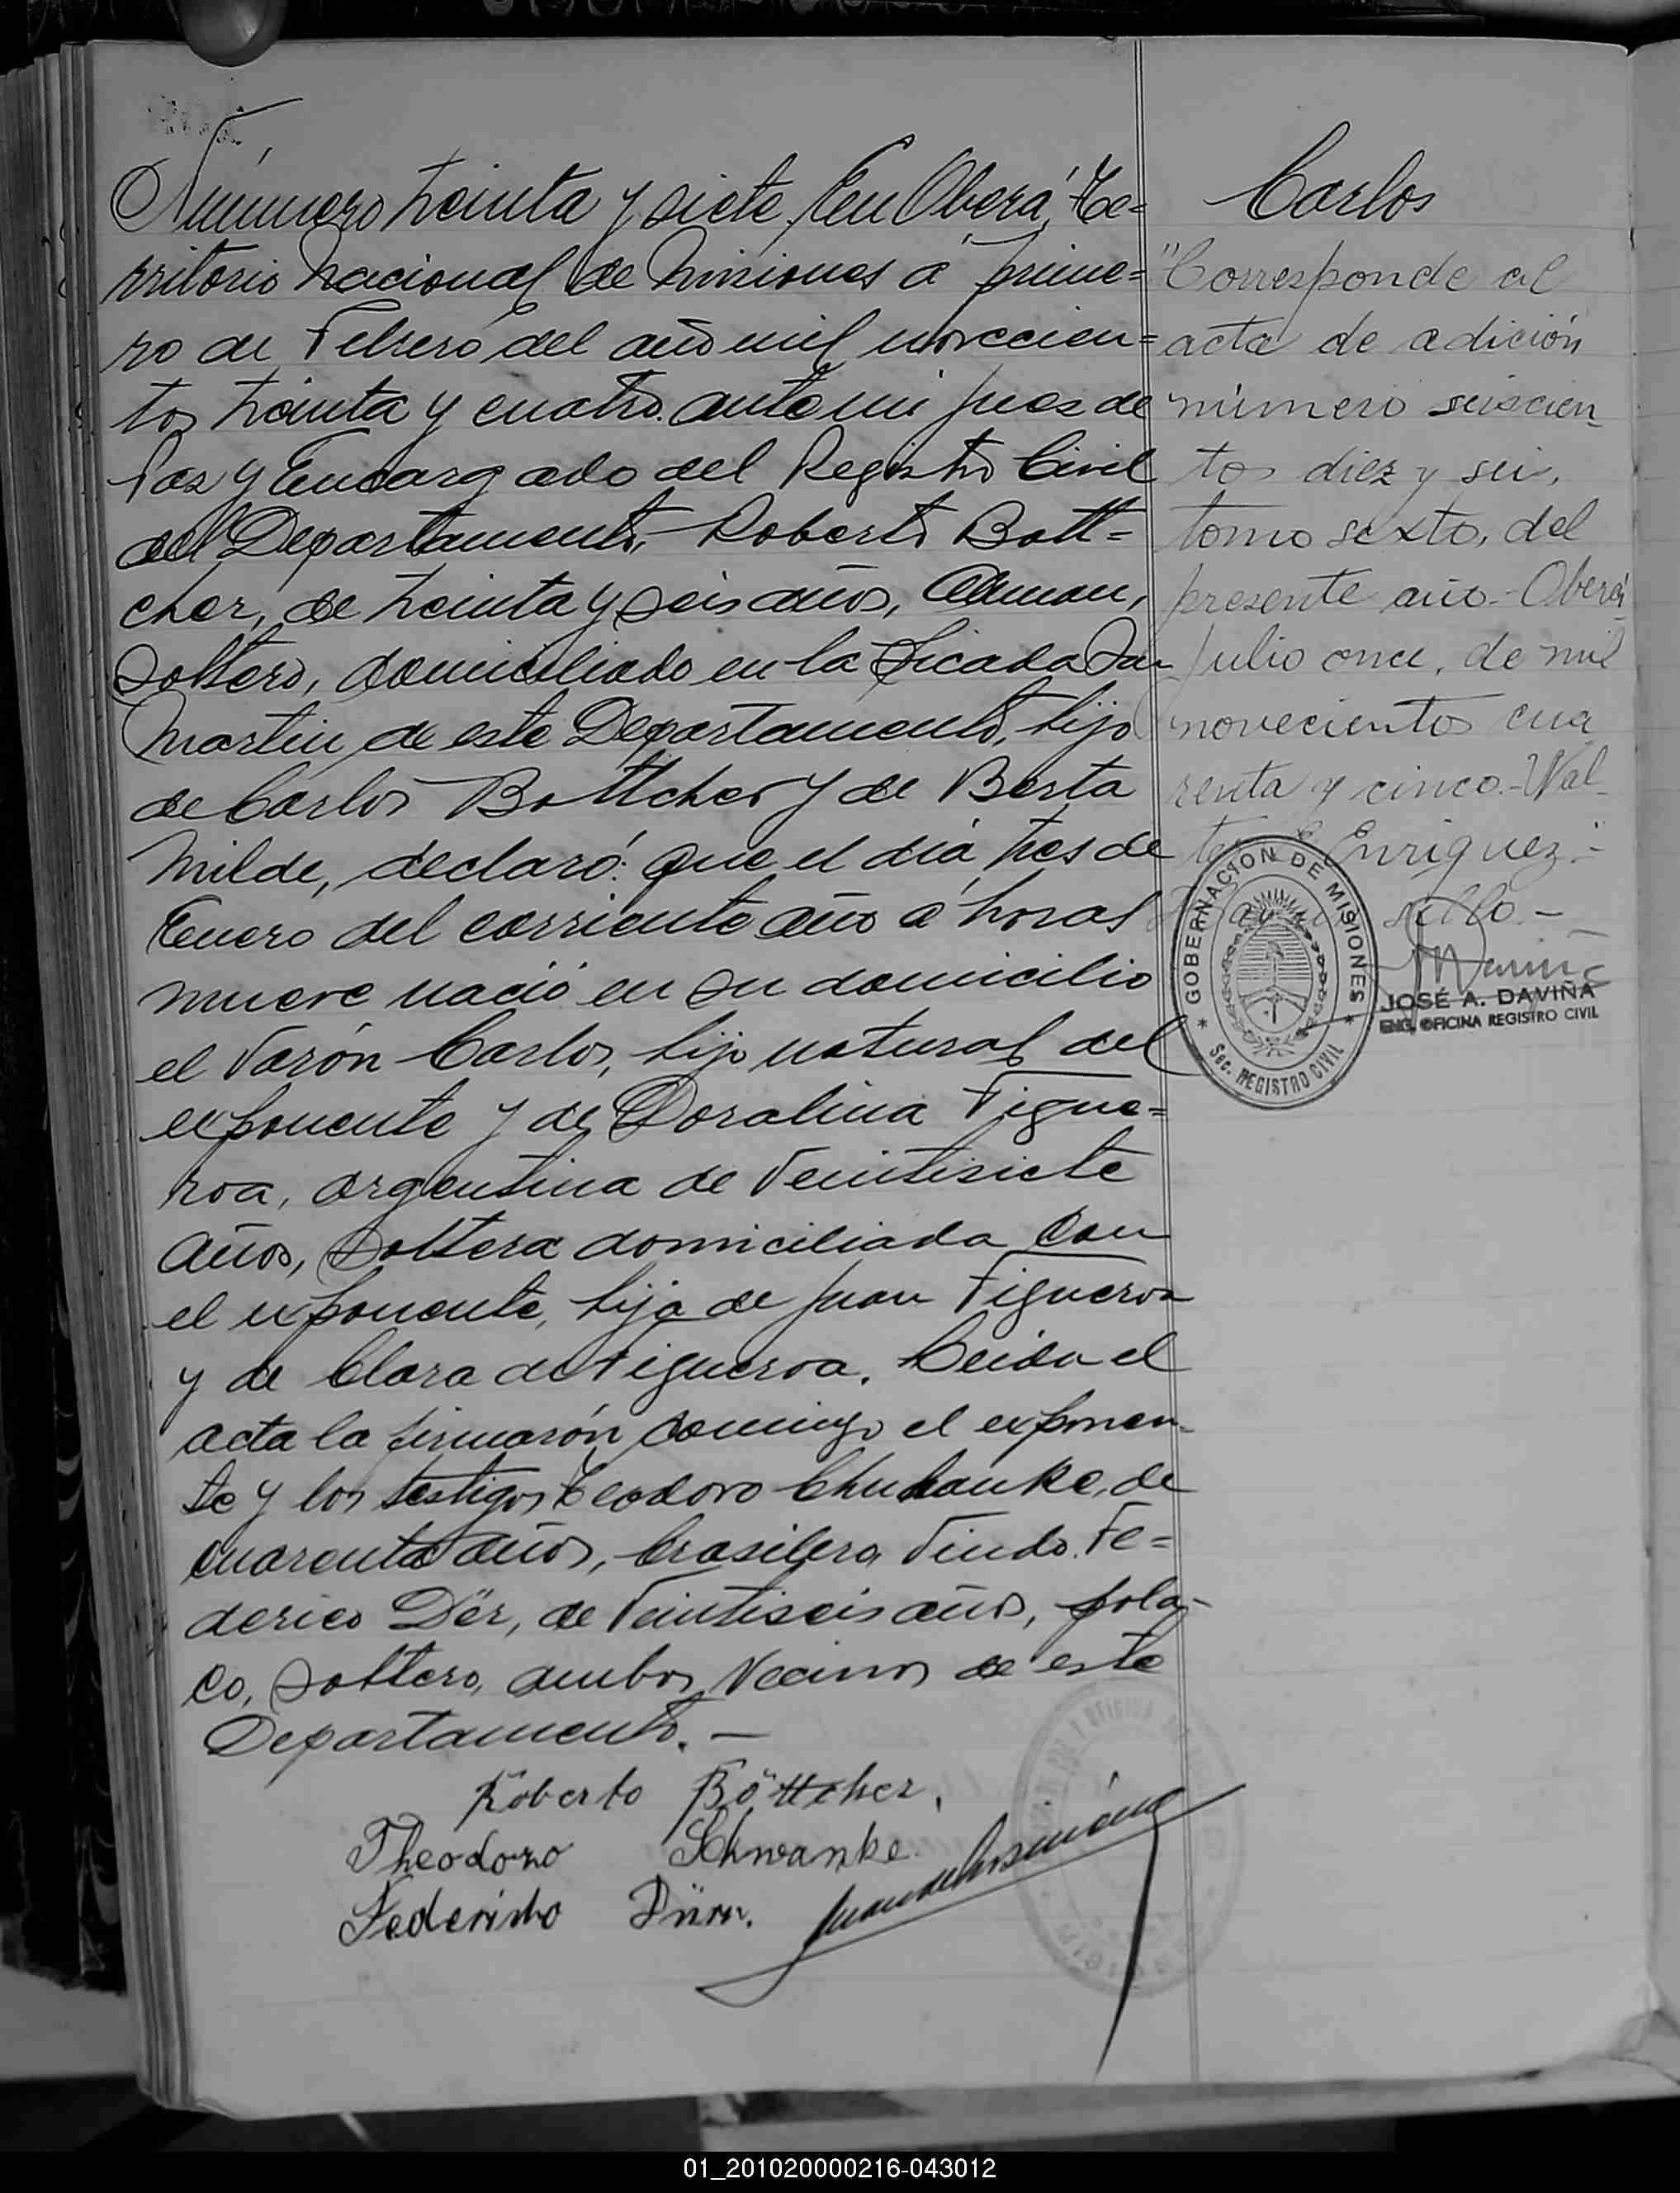 Número treinta y siete, En Oberá, Te=
rritorio Nacional de Misiones a prime=
ro de Febrero del año mil novecien=
tos treinta y cuatro. ante mi Juez de
Paz y Encargado del Registro Civil
del Departamento,- Roberto Bott=
cher, de treinta y seis años, Aleman,
soltero, domiciliado en la Picada San
Martin de este Departamento, hijo
de Carlos Bottcher y de Berta
Milde, declaró: que el día tres de
Enero del corriente año a horas
nueve nació en su domicilio
el varón Carlos, hijo natural del
exponente y de Doralina Figue=
roa, argentina de veintisiete
años, soltera domiciliada con
el exponente, hija de Juan Figueroa
y de Clara de Figueroa. Leida el
acta la firmarón conmigo el exponen-
te y los testigos Teodoro Chubanke, de
cuarenta años, brasilero, viudo. Fe=
derico Dër, de veintiseis años, pola-
co, soltero, ambos vecinos de este
Departamento.-
Roberto Böttcher.
Theodoro Schwanke
Federisho Dürr.
Carlos
"Corresponde al
acta de adición
número seiscien
tos diez y seis,
tomo sexto, del
presente año.- Oberá
Julio once, de mil
novecientos cua
renta y cinco.- Wal-
ter E. Enriquez.-
sello.-
GOBERNACION DE MISIONES
Sec. REGISTRO CIVIL
JOSÉ A. DAVIÑA
ENC. OFICINA REGISTRO CIVIL
01_201020000216-043012